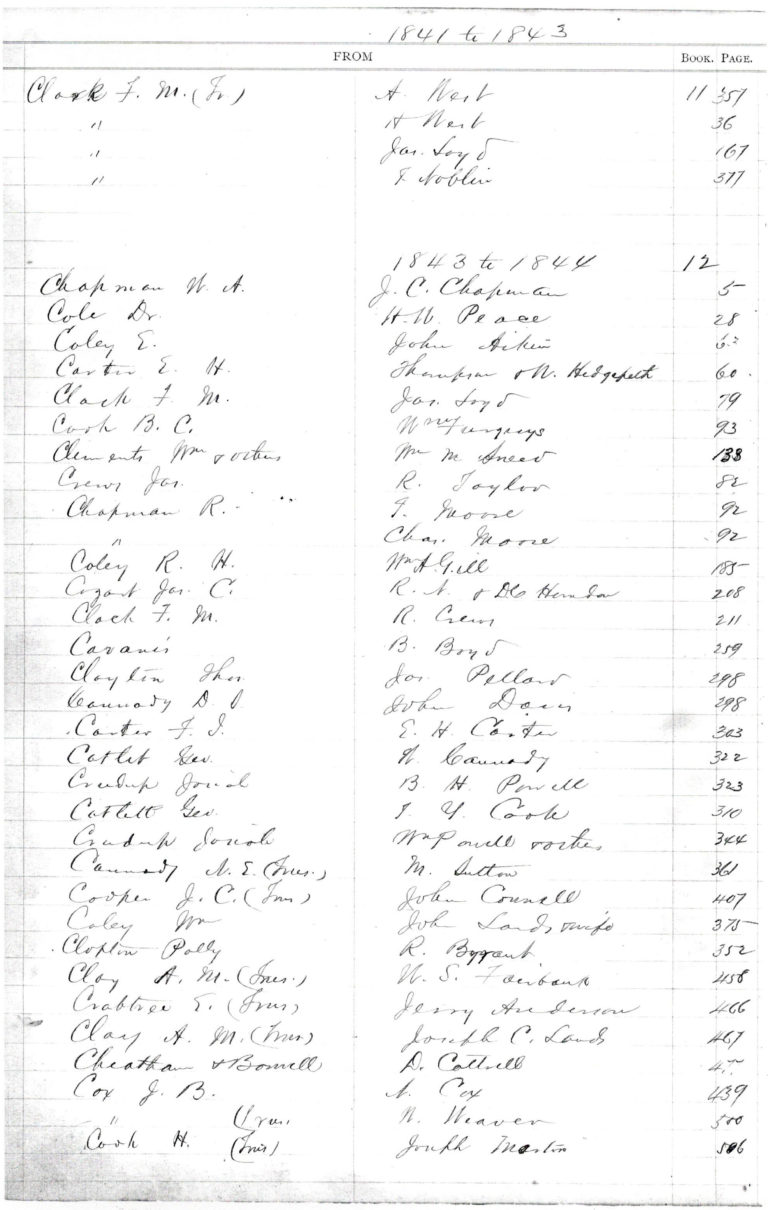 1841 to 1843
FROM BOOK. PAGE.
Clark F. M. (Tr) A. West 11 357
" H West 36
" Jas. Loyd 167
" T Noblin 377
1843 to 1844 12
Chapman W. A. J. C. Chapman 5
Cole Dr. H. W. Peace 28
Coley E. John Aikin
Carter E. H. Thompson & W. Hedgepeth 60
Clack F. M. Jas. Loyd 79
Cook B. C. 93
Clements Wm & others Wm M. Sneed 133
Crews Jas. R. Taylor 82
Chapman R. T. Moore 92
" Chas. Moore 92
Coley R. H. Wm A. Gill 185
Cozart Jas. C. R. N. & D C Herndon 208
Clack F. M. R. Crews 211
Cavanis B. Boyd 259
Clayton Thos Jas. Pellard 298
Cannady D. John Davis 298
Carter F. J. E. H. Carter 303
Catlet Geo. W. Cannady 322
Crudup Josiah B. H. Powell 323
Catlett Geo. T. Y. Cook 310
Crudup Josiah Wm Powell & others 344
Cannady N. E. (Trus.) M. Sutton 361
Cooper J. C. (Trus) John Connell 407
Coley Wm Joh Lands & wife 375
Clopton Polly R. Bryant 352
Clay A. M. (Trus.) W. S. Fairbank 458
Crabtree E. (Trus) Jerry Anderson 466
Clay A. M. (Trus) Joseph C. Lands 467
Cheatham & Bonnell D. Cottrell
Cox J. B. N. Cox 439
" (Trus. W. Weaver 500
Cook H. (Trus) Joseph Marton 506